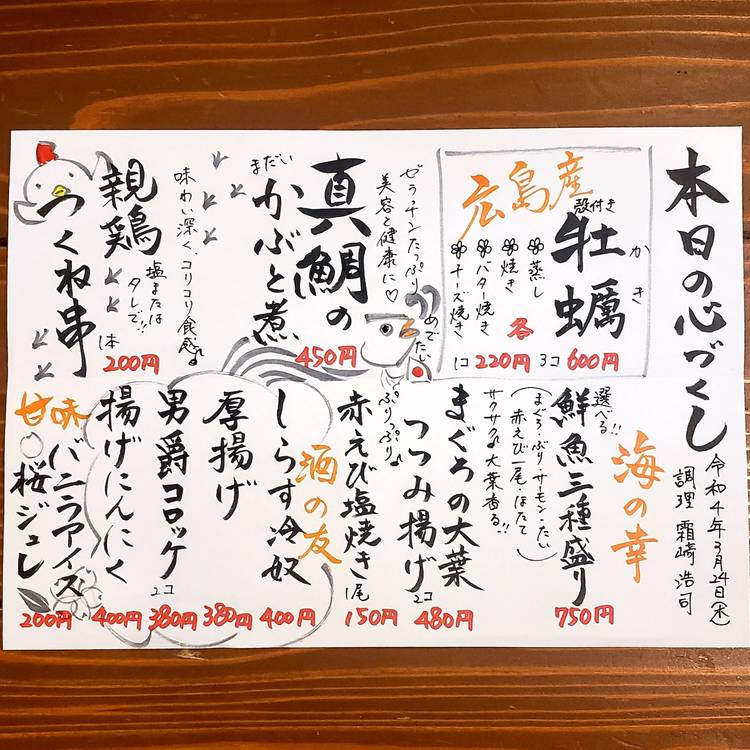 本日の心づくし
令和4年3月24日(木)
調理 霜﨑 浩司
広島産
殻付き
牡蠣
かき
蒸し
焼き
バター焼き
チーズ焼き
各
1コ 220円 3コ 600円
ゼラチンたっぷり
美容と健康に♡
真鯛の
まだい
かぶと煮
450円
めでたい
味わい深く、コリコリ食感♪
親鶏
つくね串
塩または
タレで!!
1本 200円
海の幸
選べる!!
鮮魚三種盛り
(まぐろ・ぶり・サーモン・たい
赤えび一尾・ほたて)
750円
サクサク 大葉香る!!
まぐろの大葉
つつみ揚げ
2コ
480円
ぷりっぷり♪
赤えび塩焼き
1尾
150円
酒の友
しらす冷奴
400円
厚揚げ
380円
男爵コロッケ
2コ
380円
揚げにんにく
400円
甘味
バニラアイス
桜ジュレ
200円